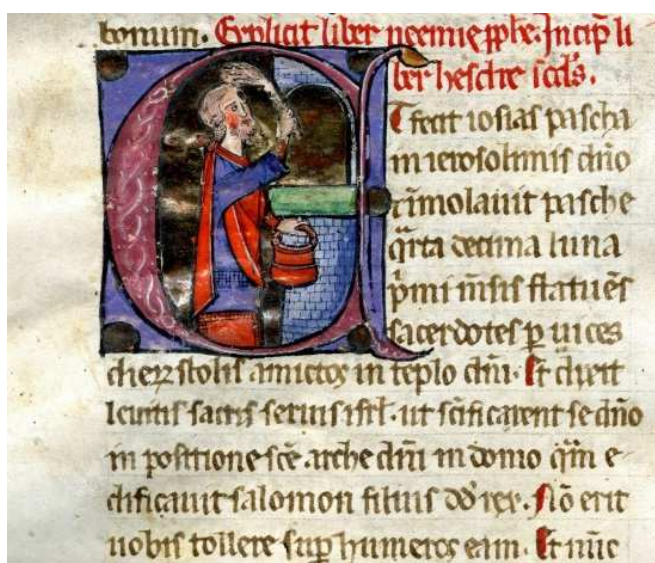 bonum. Explicit liber neemie ꝓphe. Incip̄ li
ber hesdre scđs.
T fecit iosias pascha
in ierosolimis dn̄o
⁊ īmolauit pasche
qͣrta decima luna
pͥmi m̄sis statuēs
sacerdotes ꝑ uices
dierꝝ stolis amictos in tēplo dn̄i. Et dixit
leuitis sacris seruis isrl̄. ut sc̄ificarent se dn̄o
in positione sc̄e arche dn̄i in domo qͣm e
dificauit salomon filius dd̄ rex. Nō erit
uobis tollere suꝑ humeros eam. Et nūc